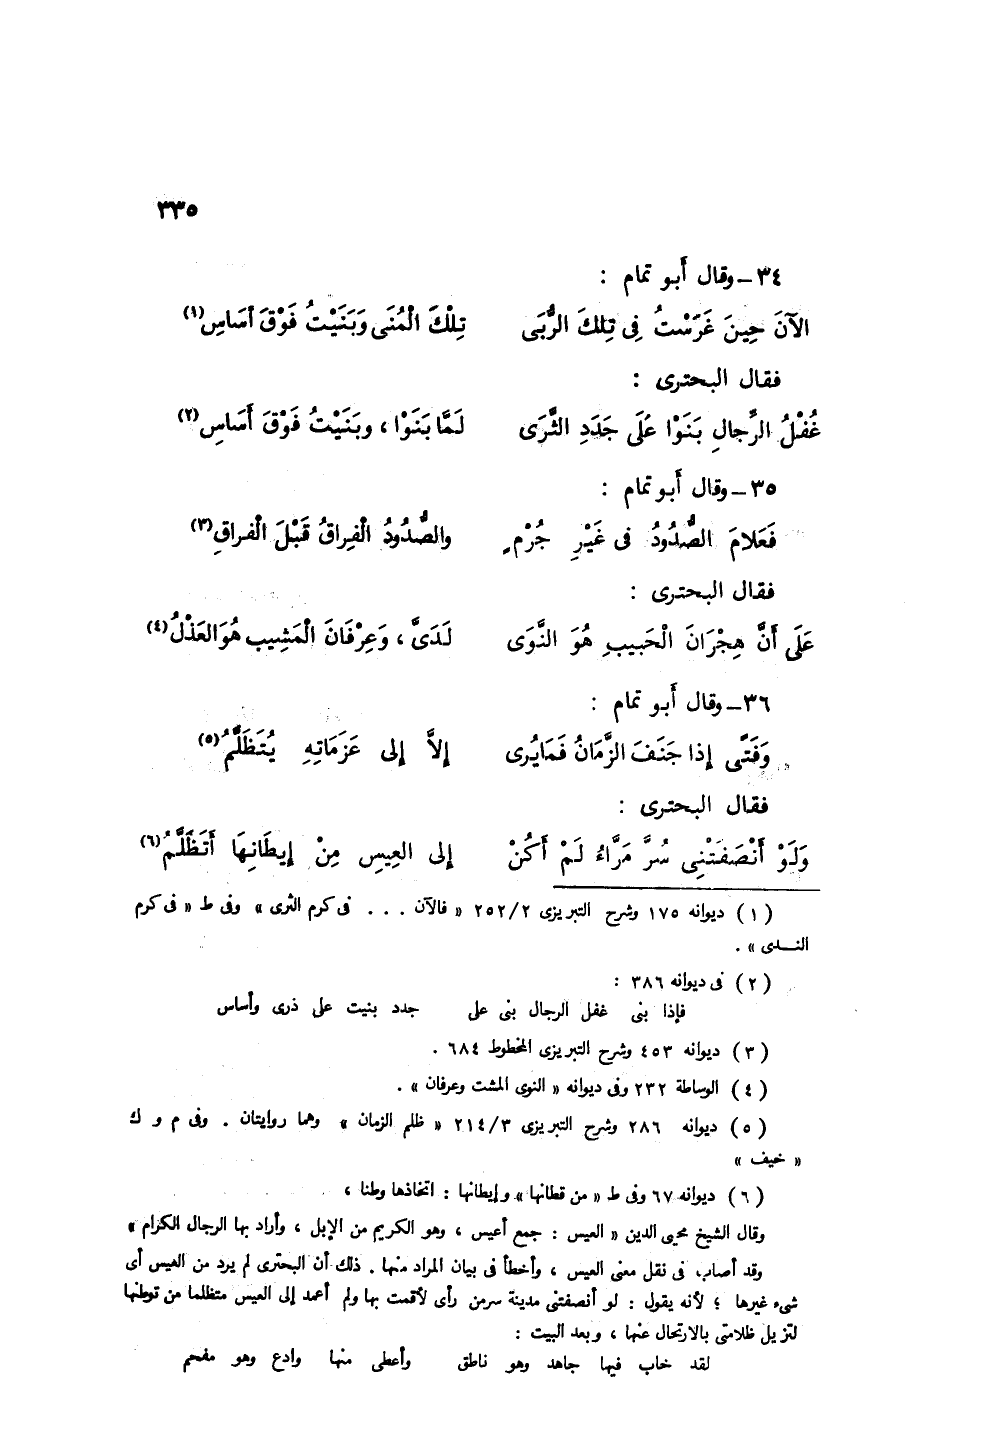 ٣٣٥
٣٤ – وقال أبو تمام :
الآنَ حِينَ غَرَسْتُ فِى تِلْكَ الرُّبَى تِلْكَ الْمُنَى وَبَنَيْتُ فَوْقَ أسَاسِ(١)
فقال البحترى :
غُفْلُ الرِّجالِ بَنَوْا عَلَى جَدَدِ الثَّرَى لَمَّا بَنَوْا ، وبَنَيْتُ فَوْقَ أَسَاسِ(٢)
٣٥ – وقال أبو تمام :
فَعَلامَ الصُّدُودُ فى غَيْرِ جُرْمٍ والصُّدُودُ الْفِراقُ قَبْلَ الْفراقِ(٣)
فقال البحترى :
عَلَى أَنَّ هِجْرَانَ الْحَبيبِ هُوَ النَّوَى لَدَىَّ ، وَعِرْفَانَ الْمَشِيبِ هُوَ العَذْلُ(٤)
٣٦ – وقال أبو تمام :
وَفَتًى إذا جَنَفَ الزَّمَانُ فَمَا يُرى إلاَّ إلى عَزَمَاتِهِ يُتَظَلَّمُ(٥)
فقال البحترى :
وَلَوْ أَنْصَفَتْنِى سُرَّ مَرَّاءُ لَمْ أَكُنْ إلى العِيسِ مِنْ إيطَانِهَا أتَظَلَّمُ(٦)
(١) ديوانه ١٧٥ وشرح التبريزى ٢٥٢/٢ « فالآن . . . فى كرم الثرى » وفى ط « فى كرم
الندى » .
(٢) فى ديوانه ٣٨٦ :
فإذا بنى غفل الرجال بنى على جدد بنيت على ذرى وأساس
(٣) ديوانه ٤٥٣ وشرح التبريزى المخطوط ٦٨٤ .
(٤) الوساطة ٢٣٢ وفى ديوانه « النوى المشت وعرفان » .
(٥) ديوانه ٢٨٦ وشرح التبريزى ٢١٤/٣ « ظلم الزمان » وهما روايتان . وفى م و ك
« خيف »
(٦) ديوانه ٦٧ وفى ط « من قطانها » وإيطانها : اتخاذها وطنا ،
وقال الشيخ محيى الدين « العيس : جمع أعيس ، وهو الكريم من الإبل ، وأراد بها الرجال الكرام »
وقد أصاب فى نقل معنى العيس ، وأخطأ فى بيان المراد منها . ذلك أن البحترى لم يرد من العيس أى
شىء غيرها ؛ لأنه يقول : لو أنصفتنى مدينة سرمن رأى لأقمت بها ولم أعمد إلى العيس متظلما من توطنها
لتزيل ظلامتى بالارتحال عنها ، وبعد البيت :
لقد خاب فيها جاهد وهو ناطق وأعطى منها وادع وهو مفحم